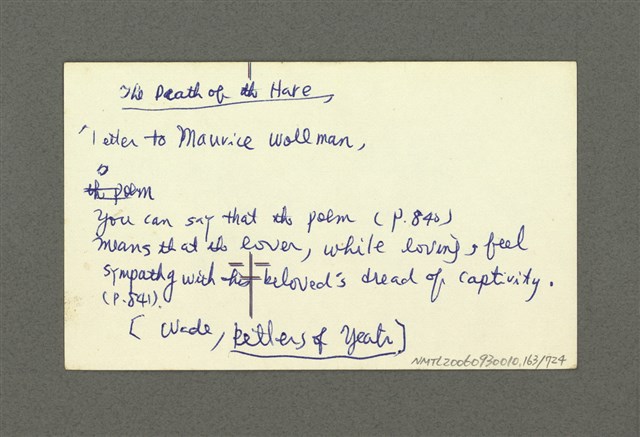 The Death of the Hare,
Letter to Maurice Wollman,
the poem
You can say that the poem (P. 840)
means that the lover, while loving, feel
sympathy with his beloved's dread of captivity.
(P. 841).
[Wade, Letters of Yeats]
NMTL20060930010,163/724